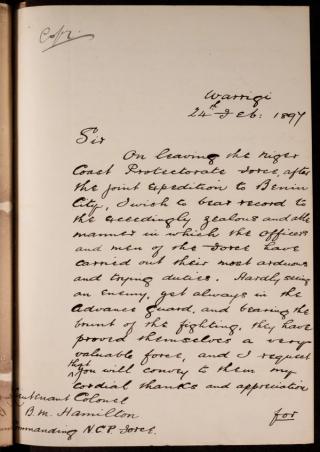 Copy.
Warrigi
24th Feb: 1897
Sir
On leaving the Niger
Coast Protectorate Force, after
the joint Expedition to Benin
City, I wish to bear record to
the exceedingly zealous and able
manner in which the Officers
and men of the Force have
carried out their most arduous
and trying duties. Hardly seeing
an enemy, yet always in the
advance guard, and bearing the
brunt of the fighting, they have
proved themselves a very
valuable force, and I request
that you will convey to them my
cordial thanks and appreciation
for
Lieutenant Colonel
B. M. Hamilton
Commanding N.C.P. Force.